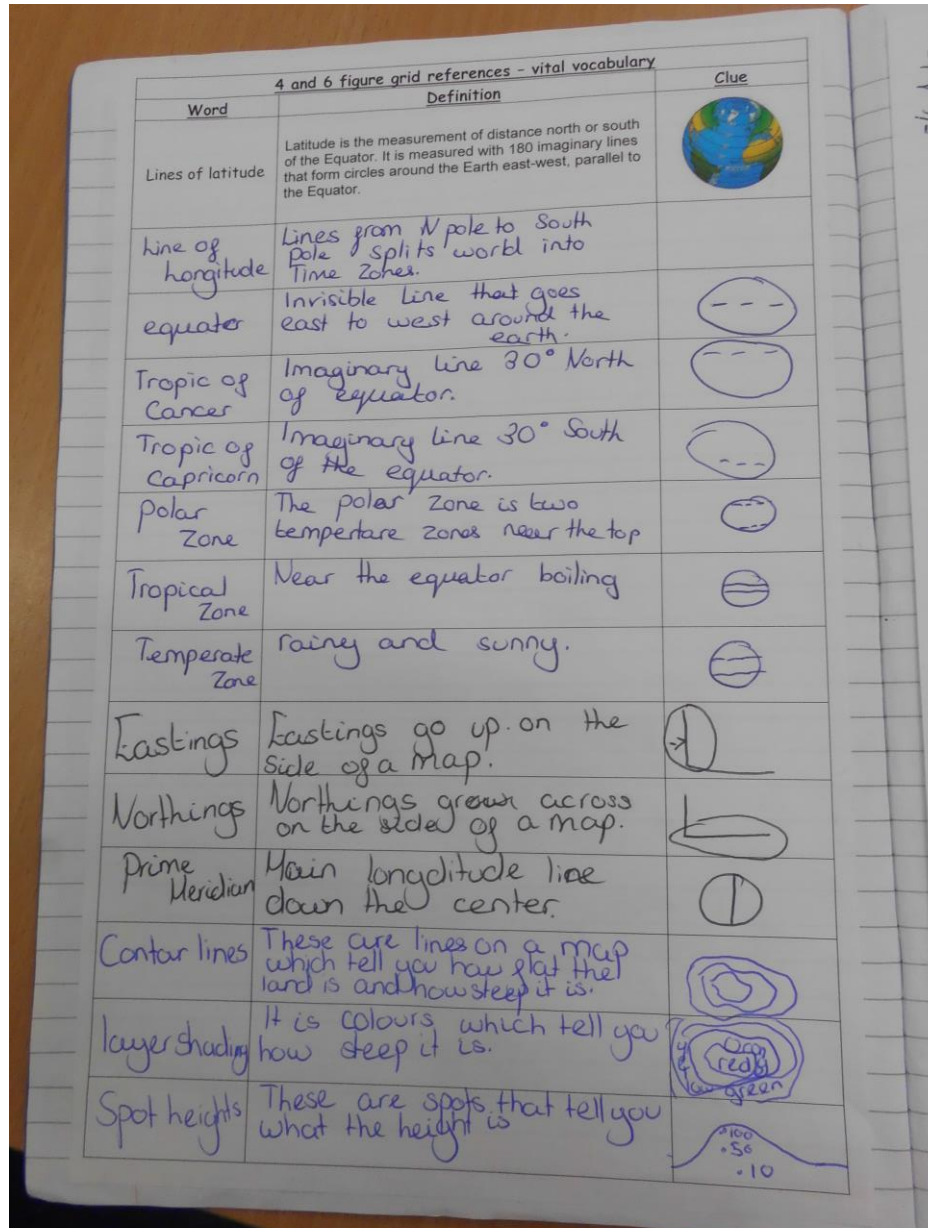 4 and 6 figure grid references – vital vocabulary
Word
Definition
Clue
Lines of latitude
Latitude is the measurement of distance north or south
of the Equator. It is measured with 180 imaginary lines
that form circles around the Earth east-west, parallel to
the Equator.
Line of
Longitude
Lines from N pole to South
pole splits world into
Time Zones.
equator
Invisible Line that goes
east to west around the
earth.
Tropic of
Cancer
Imaginary Line 30° North
of equator.
Tropic of
Capricorn
Imaginary Line 30° South
of the equator.
Polar
Zone
The polar Zone is two
tempertare zones near the top
Tropical
Zone
Near the equator boiling
Temperate
Zone
rainy and sunny.
Eastings
Eastings go up on the
Side of a map.
Northings
Northings across
on the side of a map.
Prime
Meridian
Main longditude line
down the center.
Contour lines
These are lines on a map
which tell you how flat the
land is and how steep it is.
layer shading
It is colours which tell you
how steep it is.
red
green
Spot heights
These are spots that tell you
what the height is
100
.50
.10